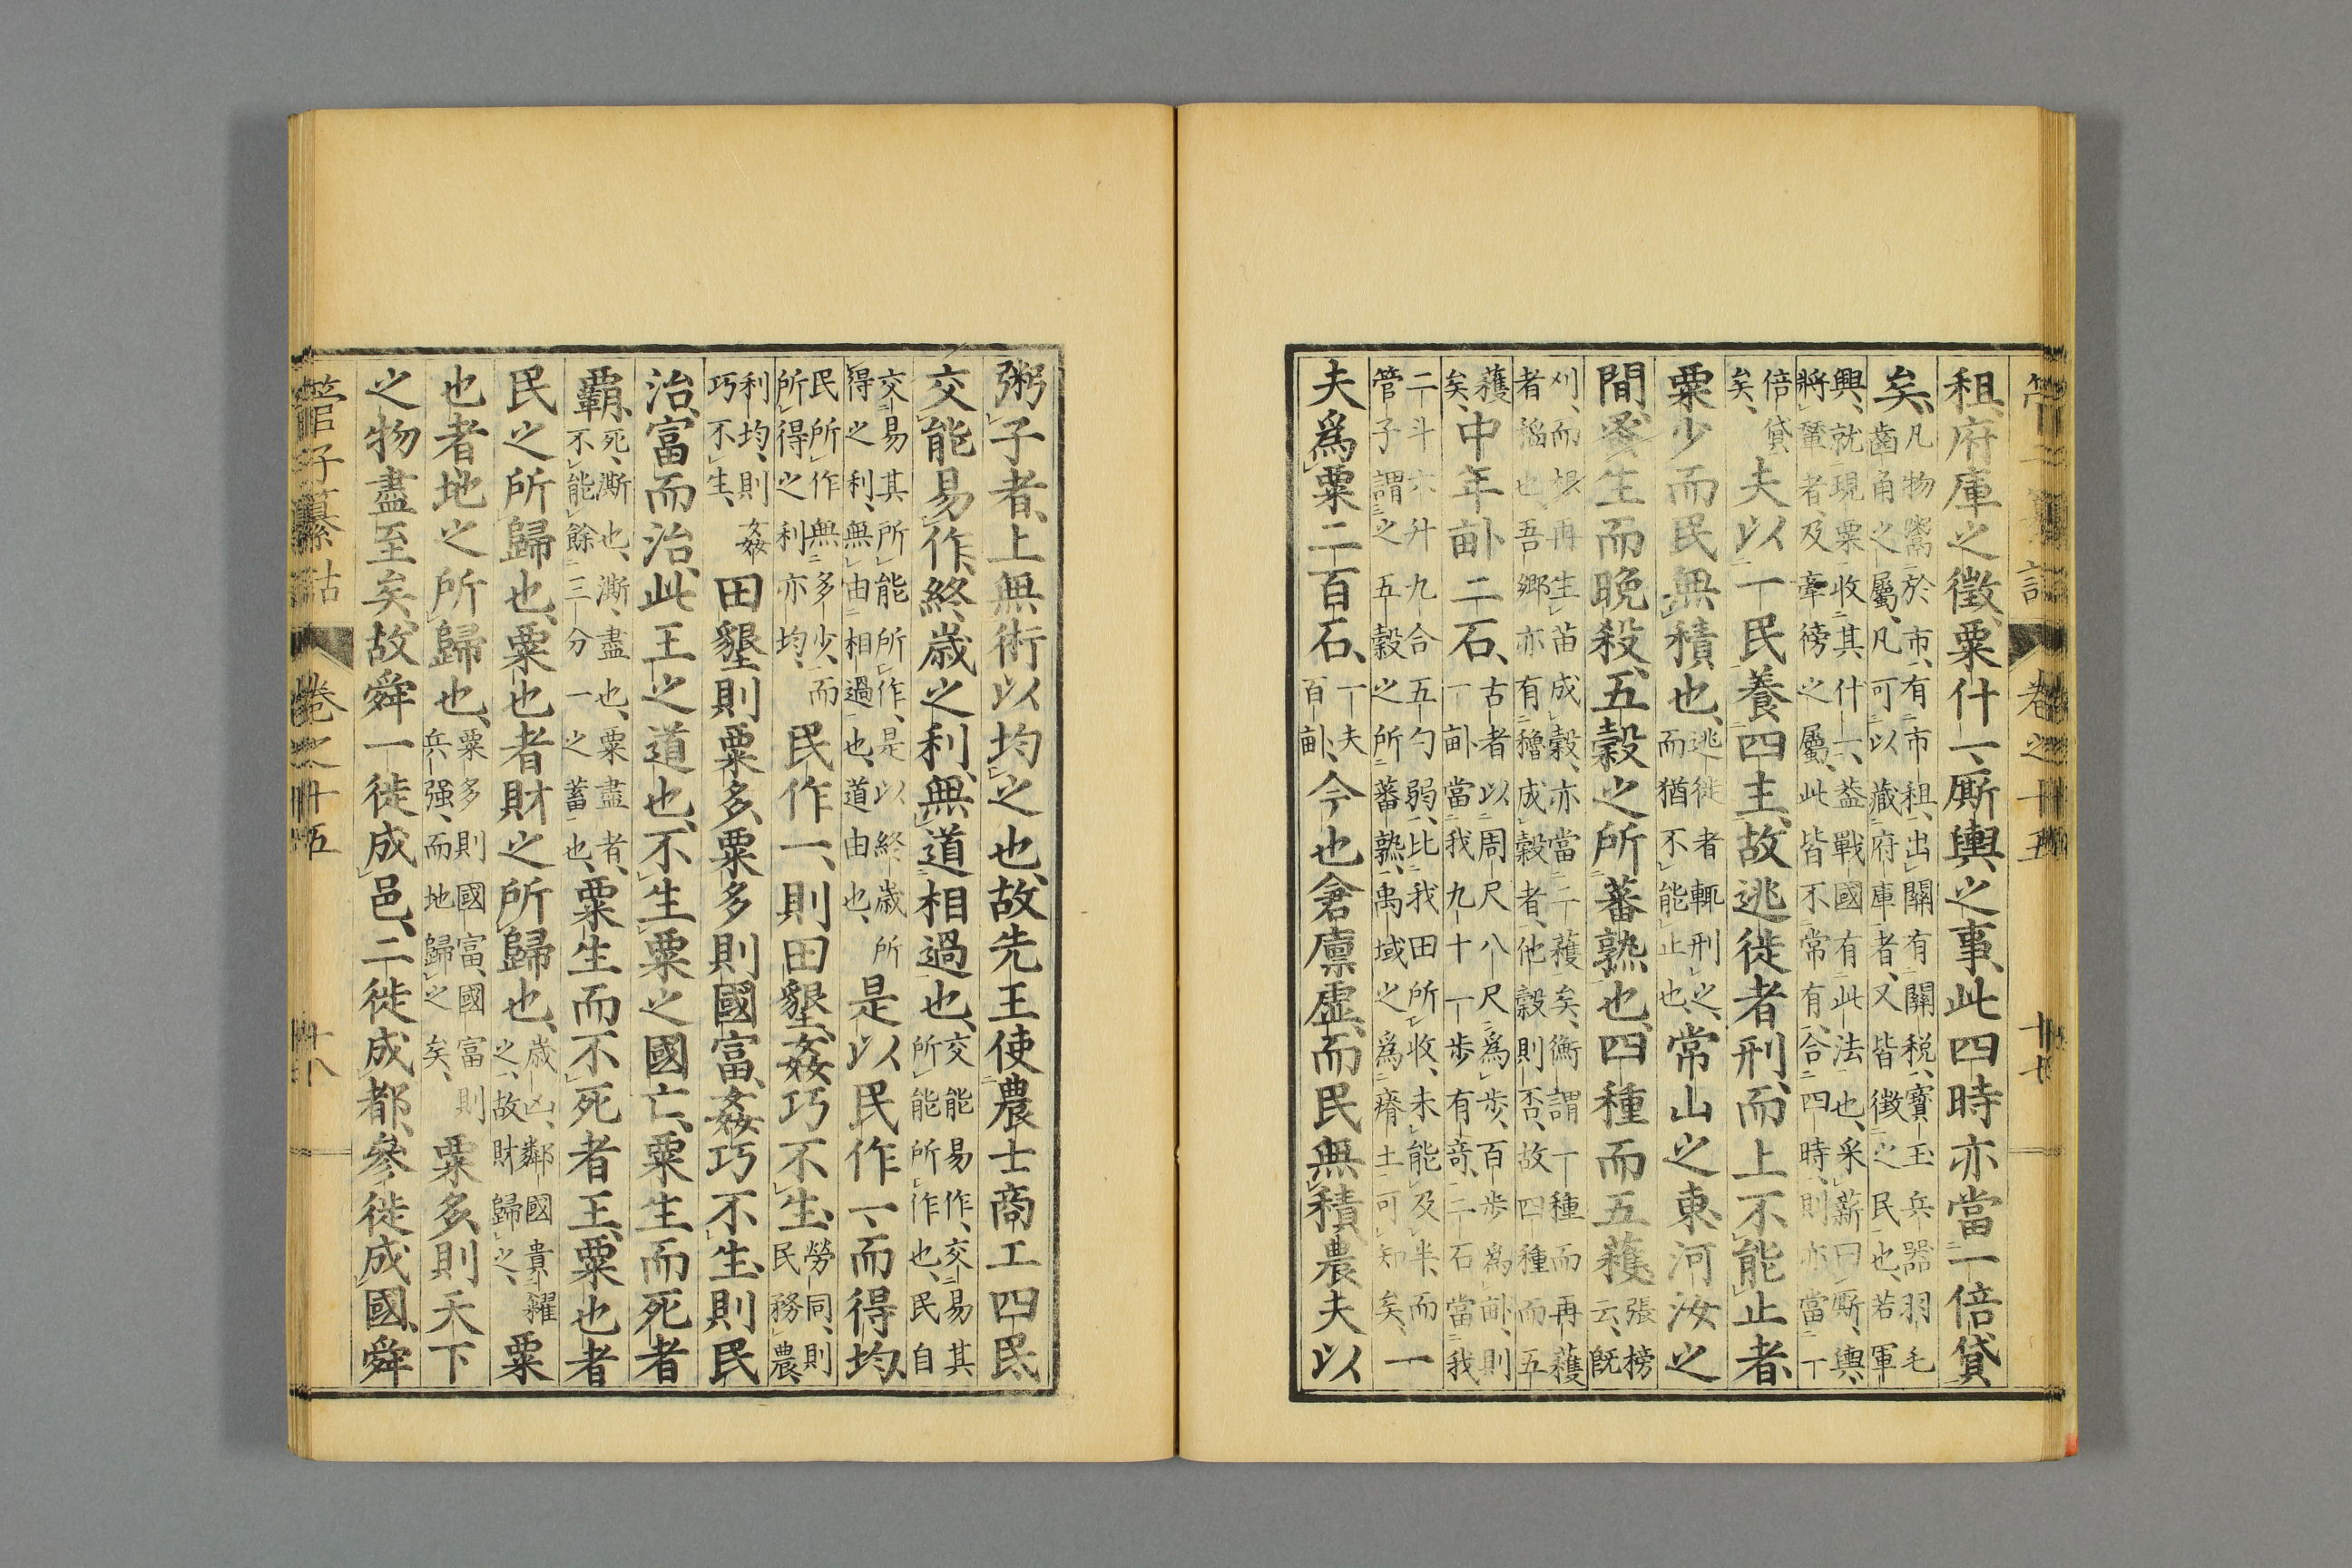 管子纂詁 卷之十五 十七
租、府庫之徵、粟什一、厮輿之事、此四時亦當一倍貸
矣、
凡物鬻於市、有市租、出關有關税、寶玉兵器羽毛
齒角之屬、凡可以藏府庫者、又皆徴之民也、若軍
興、就現粟收其什一、蓋戰國有此法也、采薪曰厮、輿、
將輦者、及牽徬之屬、此皆不常有、合四時、則亦當一
倍貸
矣、
夫以一民養四主、故逃徙者刑、而上不能止者、
粟少而民無積也、
逃徙者輒刑之、
而猶不能止也、
常山之東、河汝之
間、蚤生而晩殺、五穀之所蕃熟也、四種而五穫
張榜
云、既
刈、而根再生、苗成穀、亦當二穫矣、衡謂一種而再穫
者稻也、吾郷亦有穭成穀者、他穀則否、故四種而五
穫
矣、
中年畝二石、
古者以周尺八尺爲歩、百歩爲畝、則
一畝當我九十一歩有竒、二石當我
二斗六升九合五勺弱、比我田所收、未能及半、而
管子謂之五穀之所蕃熟、禹域之爲瘠土可知矣、
一
夫爲粟二百石、
一夫
百畝、
今也倉廩虛、而民無積、農夫以
粥子者、上無術以均之也、故先王使農士商工四民
交能易作、終歲之利、無道相過也、
交能易作、交易其
所能所作也、民自
交易其所能所作、是以終歲所
得之利、無由相過也、道由也、
是以民作一、而得均、
民所作無多少、而
所得之利亦均、
民作一、則田墾、姦巧不生、
勞同、則
民務農、
利均、則姦
巧不生、
田墾則粟多、粟多則國富、姦巧不生、則民
治、富而治、此王之道也、不生粟之國亡、粟生而死者
覇、
死、澌也、澌、盡也、粟盡者、
不能餘三分一之蓄也、
粟生而不死者王、粟也者
民之所歸也、粟也者財之所歸也、
歲凶、鄰國貴糴
之、故財歸之、
粟
也者地之所歸也、
粟多則國富、國富則
兵强、而地歸之矣、
粟多、則天下
之物盡至矣、故舜一徙成邑、二徙成都、參徙成國、舜
管子纂詁 卷之十五 十八